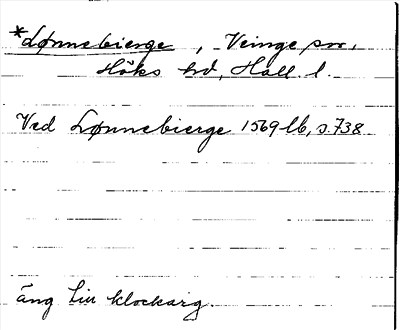 *Lønnebierge, Veinge sn,
Höks hd, Hall. l.
Ved Lønnebierge 1569 lb, s. 738
äng till klockarg.